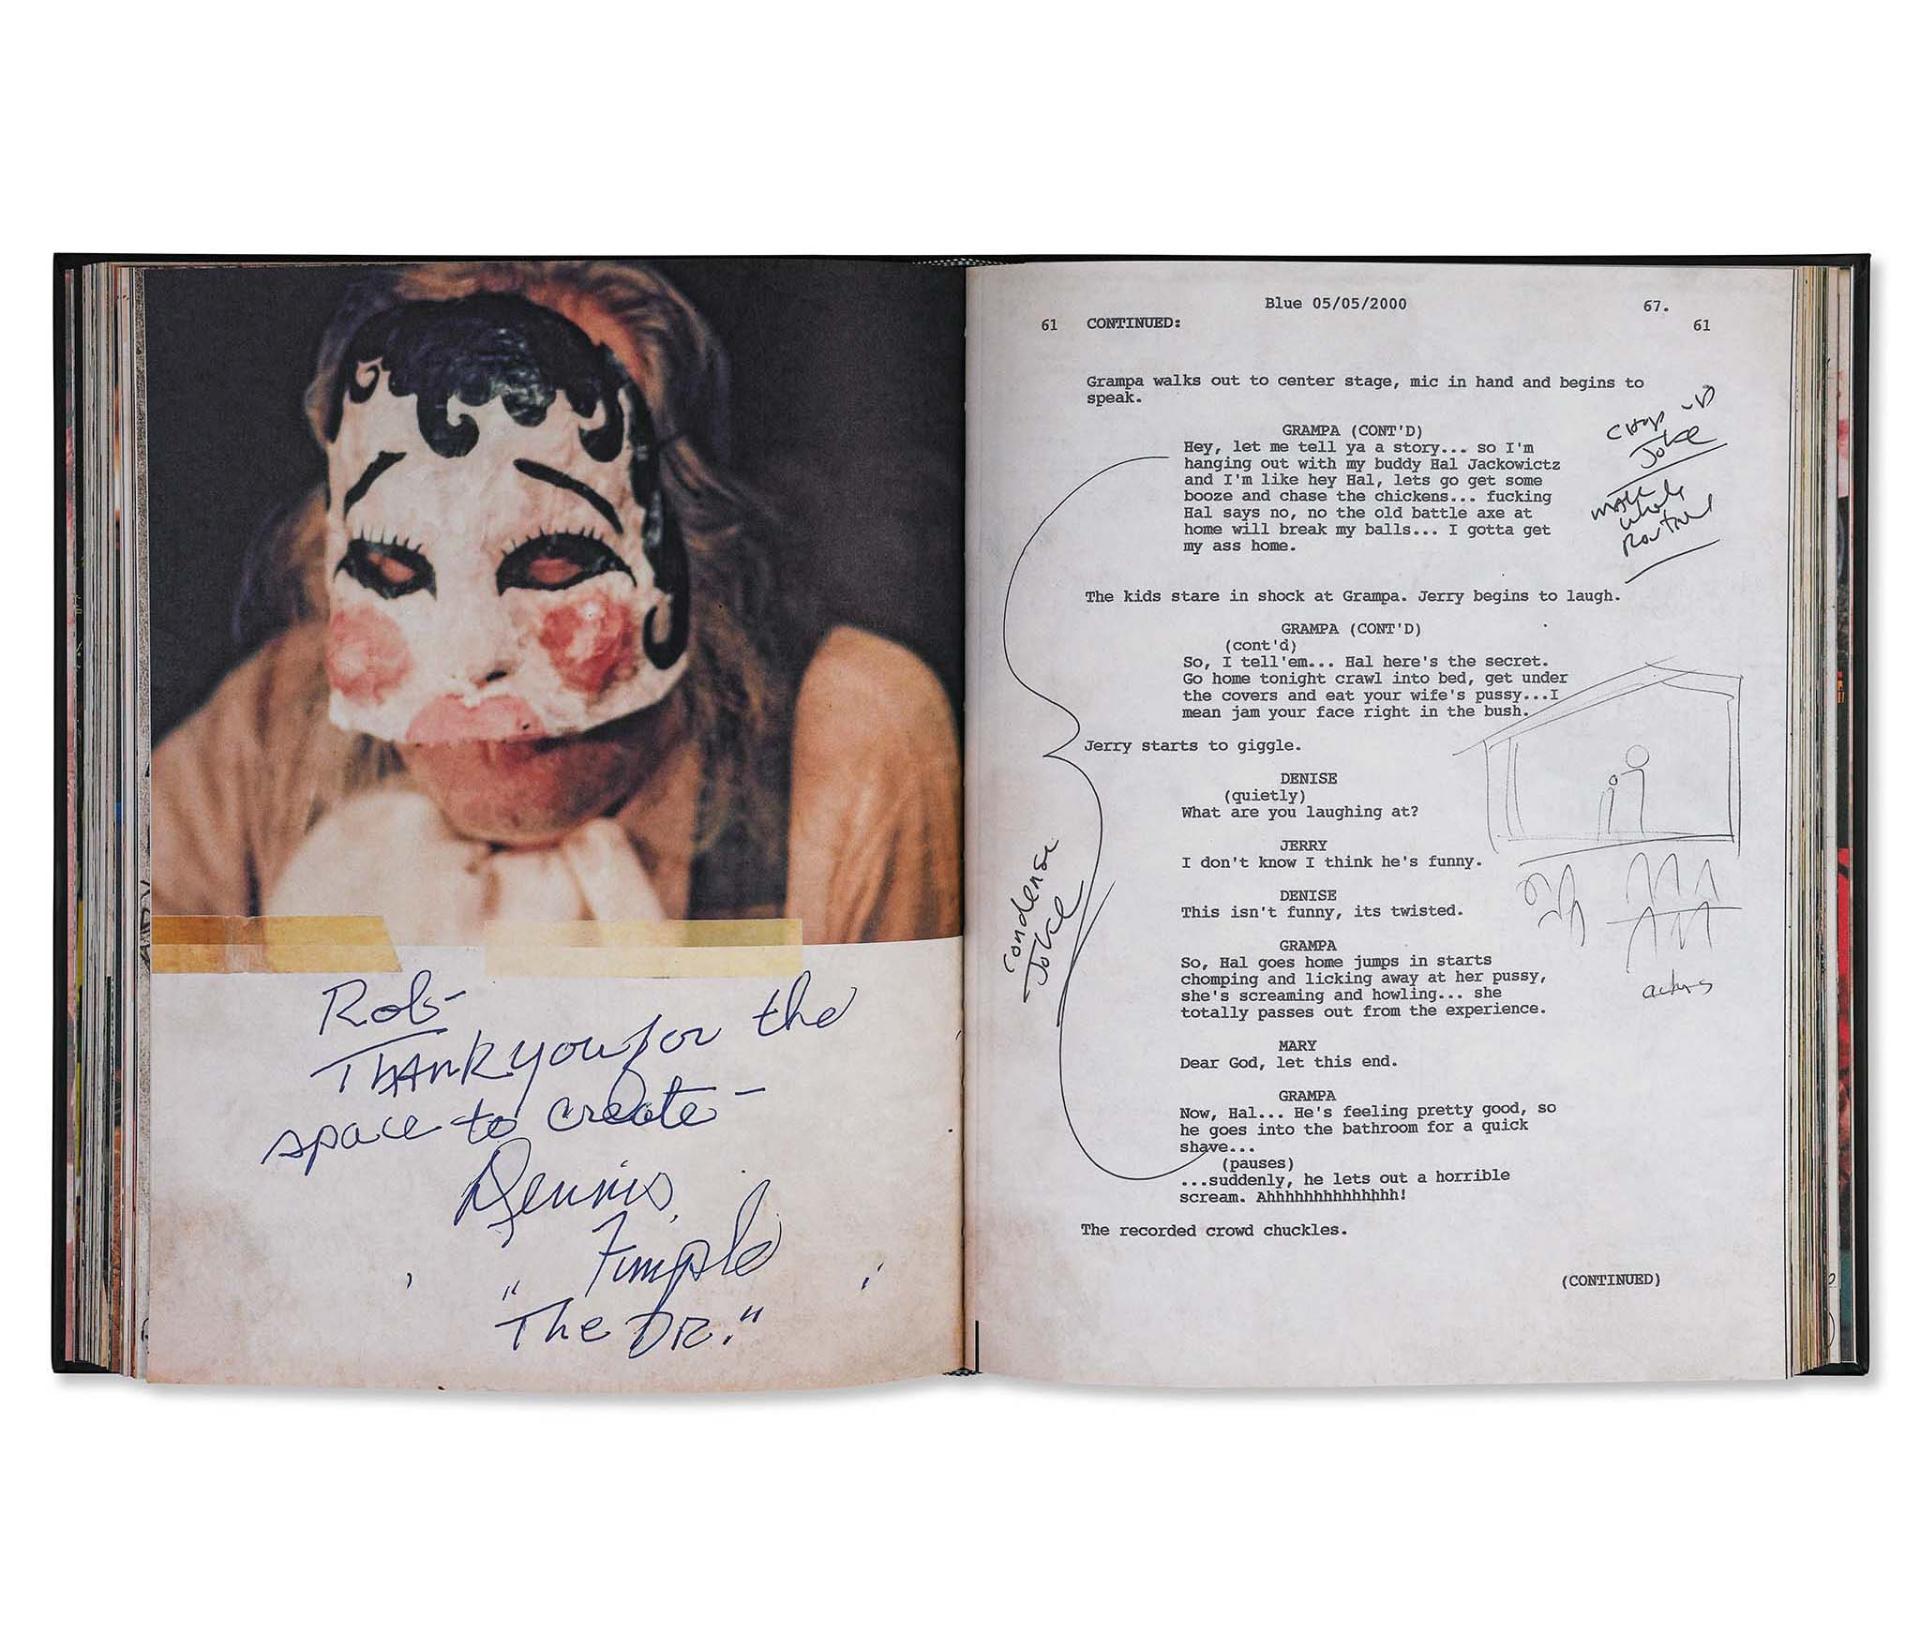 Rob-
Thank you for the
space to create-
Dennis
Fimple
"The DR."
Blue 05/05/2000
67.
61 CONTINUED: 61
Grampa walks out to center stage, mic in hand and begins to
speak.
GRAMPA (CONT'D)
Hey, let me tell ya a story... so I'm
hanging out with my buddy Hal Jackowictz
and I'm like hey Hal, lets go get some
booze and chase the chickens... fucking
Hal says no, no the old battle axe at
home will break my balls... I gotta get
my ass home.
Joke
The kids stare in shock at Grampa. Jerry begins to laugh.
GRAMPA (CONT'D)
(cont'd)
So, I tell'em... Hal here's the secret.
Go home tonight crawl into bed, get under
the covers and eat your wife's pussy...I
mean jam your face right in the bush.
Jerry starts to giggle.
DENISE
(quietly)
What are you laughing at?
JERRY
I don't know I think he's funny.
DENISE
This isn't funny, its twisted.
condense
Joke
GRAMPA
So, Hal goes home jumps in starts
chomping and licking away at her pussy,
she's screaming and howling... she
totally passes out from the experience.
actors
MARY
Dear God, let this end.
GRAMPA
Now, Hal... He's feeling pretty good, so
he goes into the bathroom for a quick
shave...
(pauses)
...suddenly, he lets out a horrible
scream. Ahhhhhhhhhhhhhh!
The recorded crowd chuckles.
(CONTINUED)